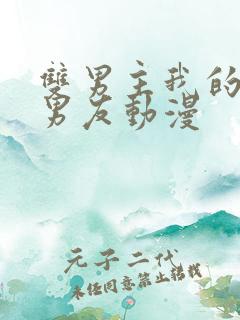 雙男主我的
男友動漫
元子二代
未經同意禁止轉載